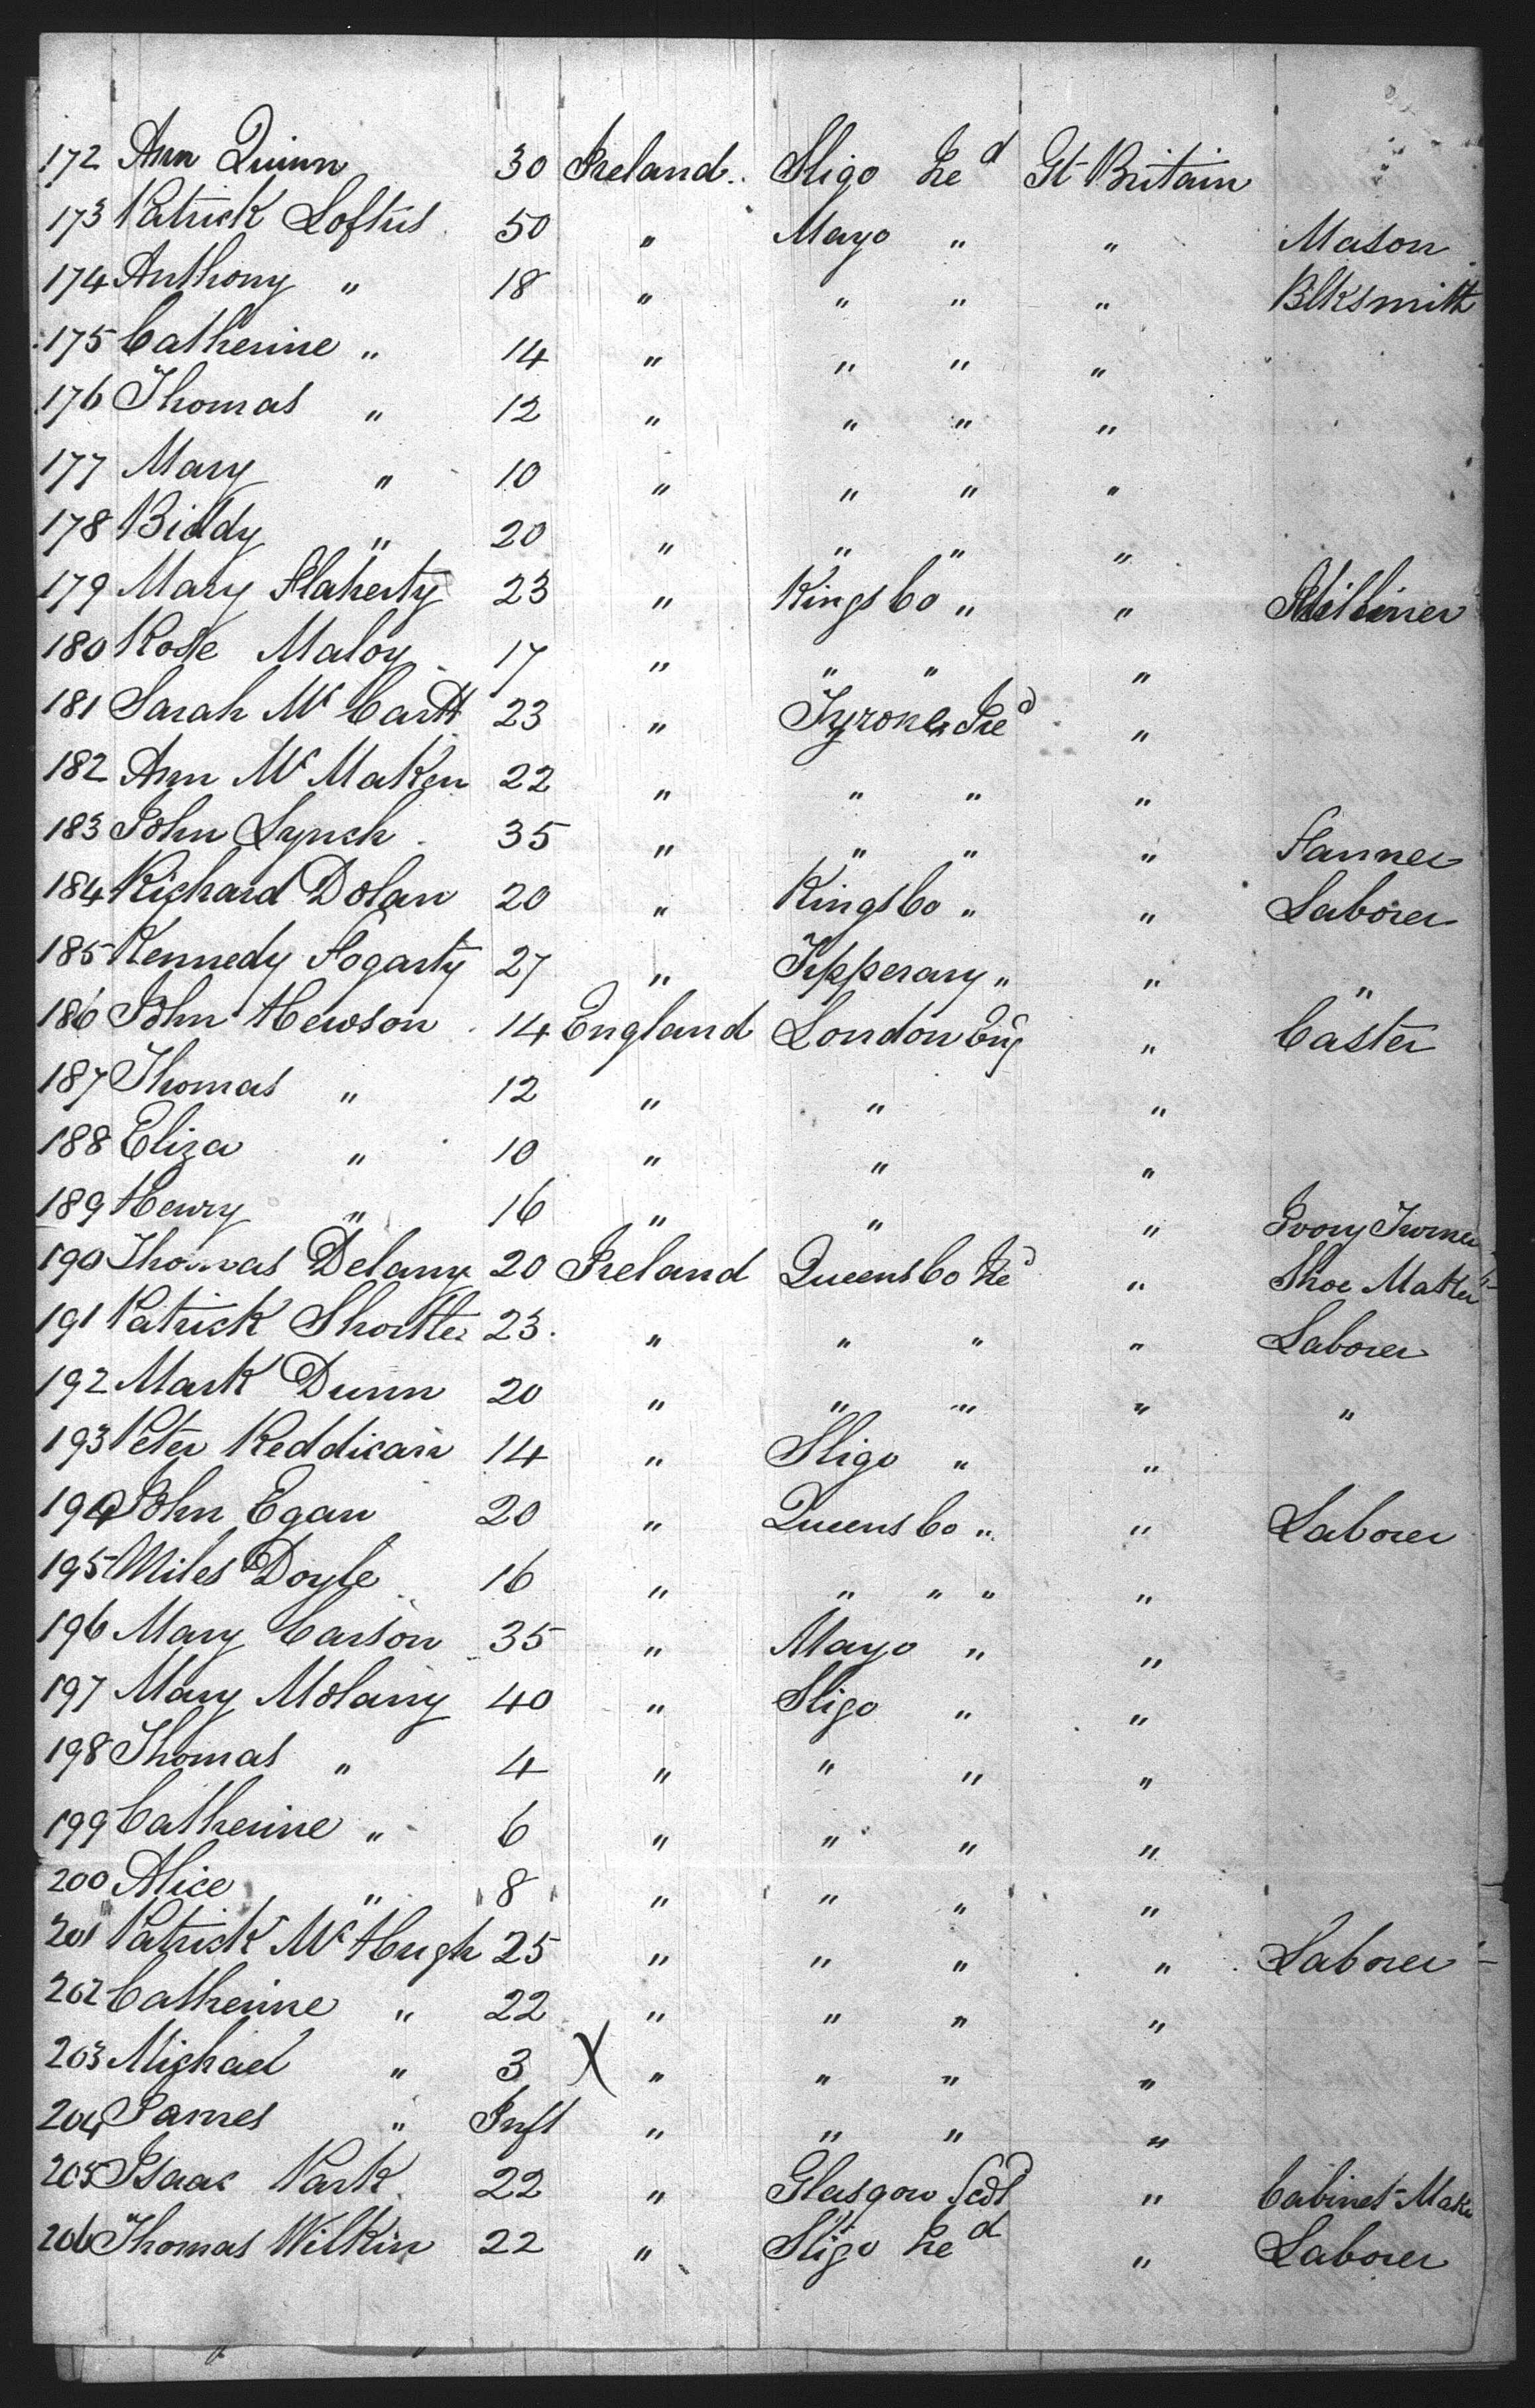 172 Ann Quinn 30 Ireland. Sligo Ire^d Gt Britain "
173 Patrick Loftus 50 " Mayo " " Mason
174 Anthony " 18 " " " " Blksmith
175 Catherine " 14 " " " "
176 Thomas " 12 " " " "
177 Mary " 10 " " " "
178 Biddy " 20 " " " "
179 Mary Flaherty 23 " Kings Co " " Milliner
180 Rose Maloy 17 " " " "
181 Sarah Mc 23 " Tyrone Ire^d "
182 Ann Mc Maken 22 " " " "
183 John Lynch 35 " " " "
184 Richard Dolan 20 " Kings Co " " Laborer
185 Kennedy Fogarty 27 " Tipperary " " "
186 John Hewson 14 England London Eng " Caster
187 Thomas " 12 " " "
188 Eliza " 10 " " "
189 Henry " 16 " " " Ivory Turner
190 Thomas Delany 20 Ireland Queens Co Ire^d " Shoe Maker
191 Patrick 23 " " " " Laborer
192 Mark Dunn 20 " " " " "
193 Peter Reddican 14 " Sligo " "
194 John Egan 20 " Queens Co " " Laborer
195 Miles Doyle 16 " " " " "
196 Mary Carson 35 " Mayo " "
197 Mary Molany 40 " Sligo " "
198 Thomas " 4 " " " "
199 Catherine " 6 " " " "
200 Alice " 8 " " " "
201 Patrick Mc Hugh 25 " " " " Laborer
202 Catherine " 22 " " " "
203 Michael " 3 X " " " "
204 James " Inft " " " "
205 Isaac Park 22 " Glasgow Scot^d " Cabinet Maker
206 Thomas Wilkin 22 " Sligo Ire^d " Laborer